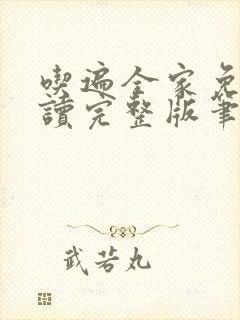 喫遍全家免
讀完整版筆
武若丸